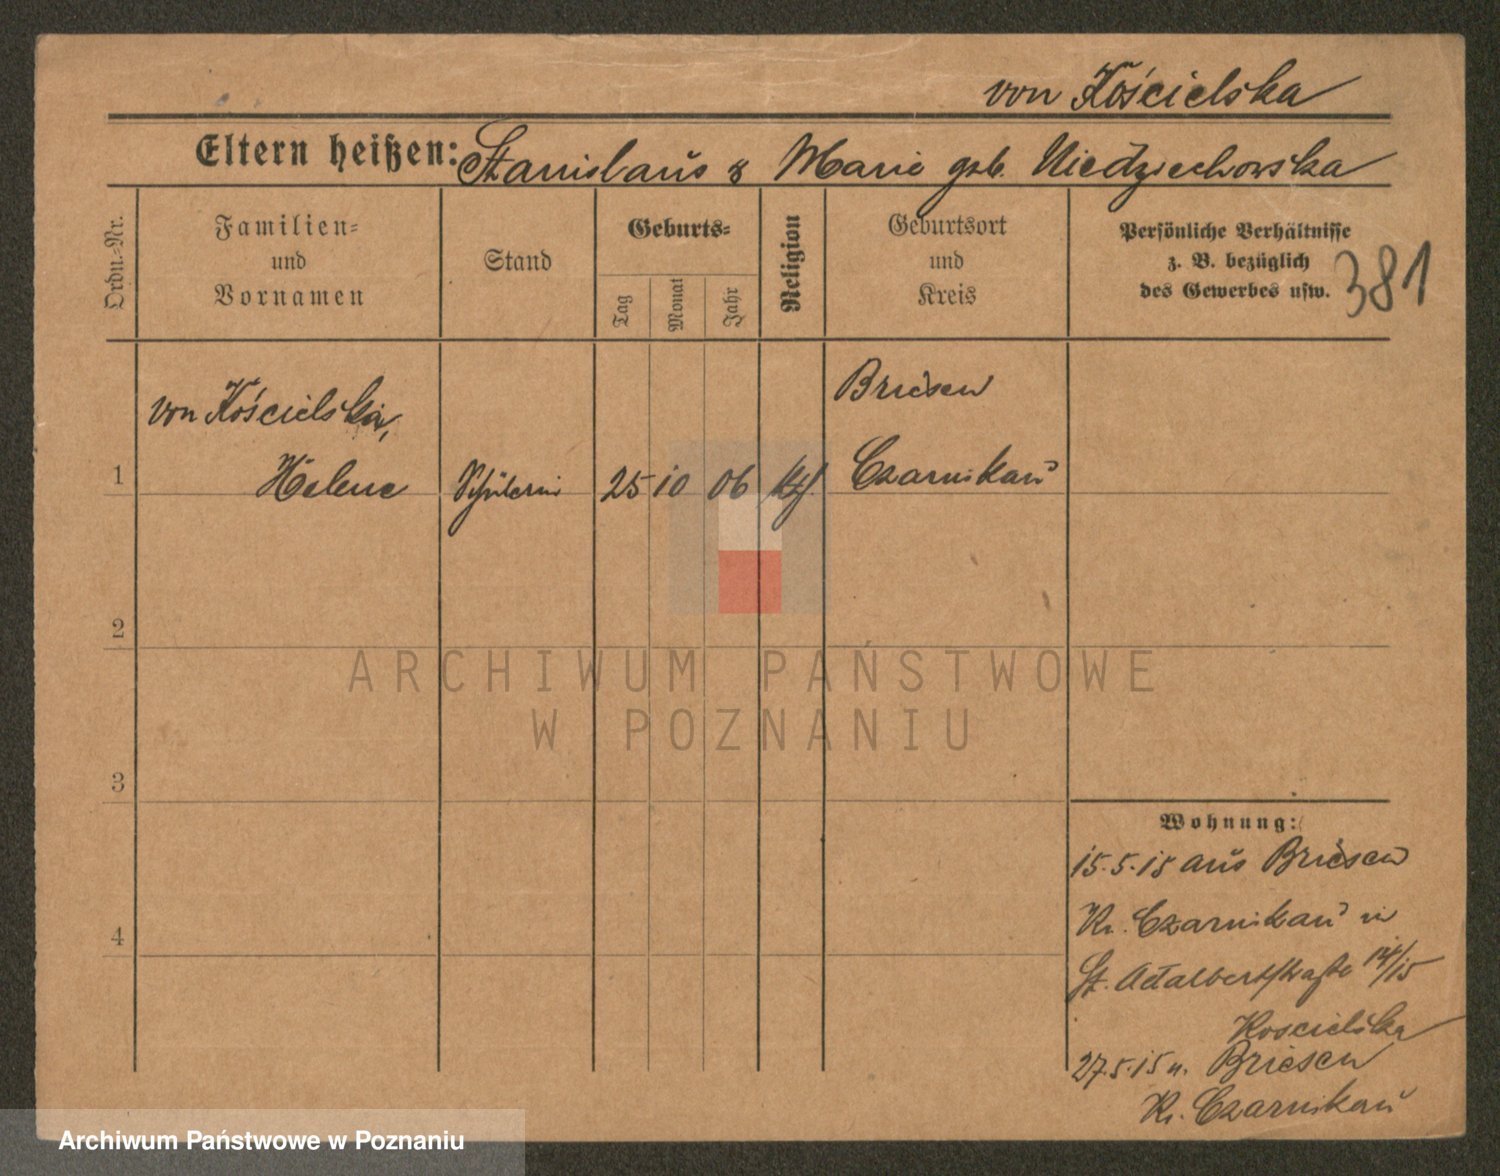 von Kościelska
Eltern heißen: Stanislaus & Marie geb. Niedziechowska
Ordn.-Nr.
Familien-
und
Vornamen
Stand
Geburts-
Tag
Monat
Jahr
Religion
Geburtsort
und
Kreis
Persönliche Verhältnisse
z. B. bezüglich
des Gewerbes usw.
381
von Kościelska,
Briesen
1 Helene Schülerin 25 10 06 kth. Czarnikau
2
3
4
Wohnung:
15.5.15 aus Briesen
Kr. Czarnikau in
St. Adalbertstraße 14/15
Koscielska
27.5.15 n. Briesen
Kr. Czarnikau
ARCHIWUM PAŃSTWOWE
W POZNANIU
Archiwum Państwowe w Poznaniu